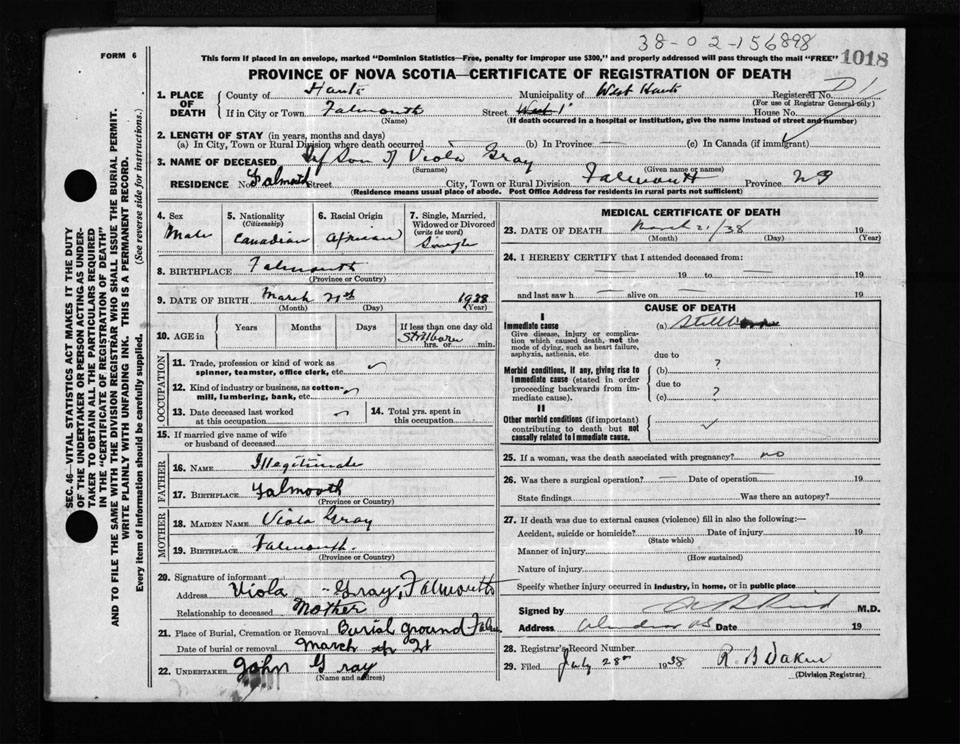 38-02-156898
FORM 6
This form if placed in an envelope, marked "Dominion Statistics—Free, penalty for improper use $300," and properly addressed will pass through the mail "FREE"
1018
PROVINCE OF NOVA SCOTIA—CERTIFICATE OF REGISTRATION OF DEATH
1. PLACE OF DEATH
County of Hants Municipality of West Hants Registered No.
(For use of Registrar General only)
If in City or Town Falmouth Street House No.
(Name) (If death occurred in a hospital or institution, give the name instead of street and number)
2. LENGTH OF STAY (in years, months and days)
(a) In City, Town or Rural Division where death occurred — (b) In Province — (c) In Canada (if immigrant)
3. NAME OF DECEASED Son of Viola Gray
(Surname) (Given name or names)
RESIDENCE No. Falmouth Street City, Town or Rural Division Falmouth Province NS
(Residence means usual place of abode. Post Office Address for residents in rural parts not sufficient)
4. Sex
Male
5. Nationality
(Citizenship)
Canadian
6. Racial Origin
African
7. Single, Married, Widowed or Divorced
(write the word)
Single
8. BIRTHPLACE Falmouth
(Province or Country)
9. DATE OF BIRTH March 21st 1938
(Month) (Day) (Year)
10. AGE in Years Months Days If less than one day old
Stillborn
hrs. or min.
OCCUPATION
11. Trade, profession or kind of work as spinner, teamster, office clerk, etc.
12. Kind of industry or business, as cotton-mill, lumbering, bank, etc.
13. Date deceased last worked at this occupation
14. Total yrs. spent in this occupation
15. If married give name of wife or husband of deceased
FATHER
16. NAME Illegitimate
17. BIRTHPLACE Falmouth
(Province or Country)
MOTHER
18. MAIDEN NAME Viola Gray
19. BIRTHPLACE Falmouth.
(Province or Country)
20. Signature of informant
Address Viola Gray, Falmouth
Relationship to deceased Mother
21. Place of Burial, Cremation or Removal Burial Ground
Date of burial or removal March 21
22. UNDERTAKER John Gray
(Name and address)
MEDICAL CERTIFICATE OF DEATH
23. DATE OF DEATH March 21/38 19
(Month) (Day) (Year)
24. I HEREBY CERTIFY that I attended deceased from:
— 19 to — 19
and last saw h — alive on — 19
CAUSE OF DEATH
I
Immediate cause
Give disease, injury or complication which caused death, not the mode of dying, such as heart failure, asphyxia, asthenia, etc
(a) Stillborn
due to
Morbid conditions, if any, giving rise to immediate cause (stated in order proceeding backwards from immediate cause).
(b) ?
due to
(c) ?
II
Other morbid conditions (if important) contributing to death but not causally related to immediate cause.
25. If a woman, was the death associated with pregnancy? no
26. Was there a surgical operation? — Date of operation 19
State findings Was there an autopsy?
27. If death was due to external causes (violence) fill in also the following:—
Accident, suicide or homicide? Date of injury 19
(State which)
Manner of injury
(How sustained)
Nature of injury
Specify whether injury occurred in industry, in home, or in public place
Signed by M.D.
Address Date 19
28. Registrar's Record Number
29. Filed July 28 1938
(Division Registrar)
SEC. 46—VITAL STATISTICS ACT MAKES IT THE DUTY
OF THE UNDERTAKER OR PERSON ACTING AS UNDER-
TAKER TO OBTAIN ALL THE PARTICULARS REQUIRED
IN THE "CERTIFICATE OF REGISTRATION OF DEATH"
AND TO FILE THE SAME WITH THE DIVISION REGISTRAR WHO SHALL ISSUE THE BURIAL PERMIT.
WRITE PLAINLY WITH UNFADING INK. THIS IS A PERMANENT RECORD.
Every item of information should be carefully supplied. (See reverse side for instructions.)